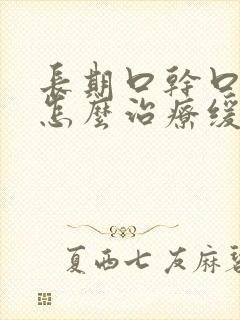 長期口幹口
怎麼治療緩
夏西七友麻